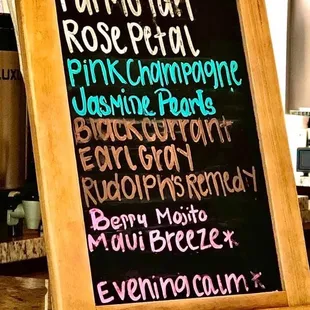 Rose Petal
Pink Champagne
Jasmine Pearls
Blackcurrant
Earl Gray
Rudolph's Remedy
Berry Mojito
Maui Breeze*
Evening calm *